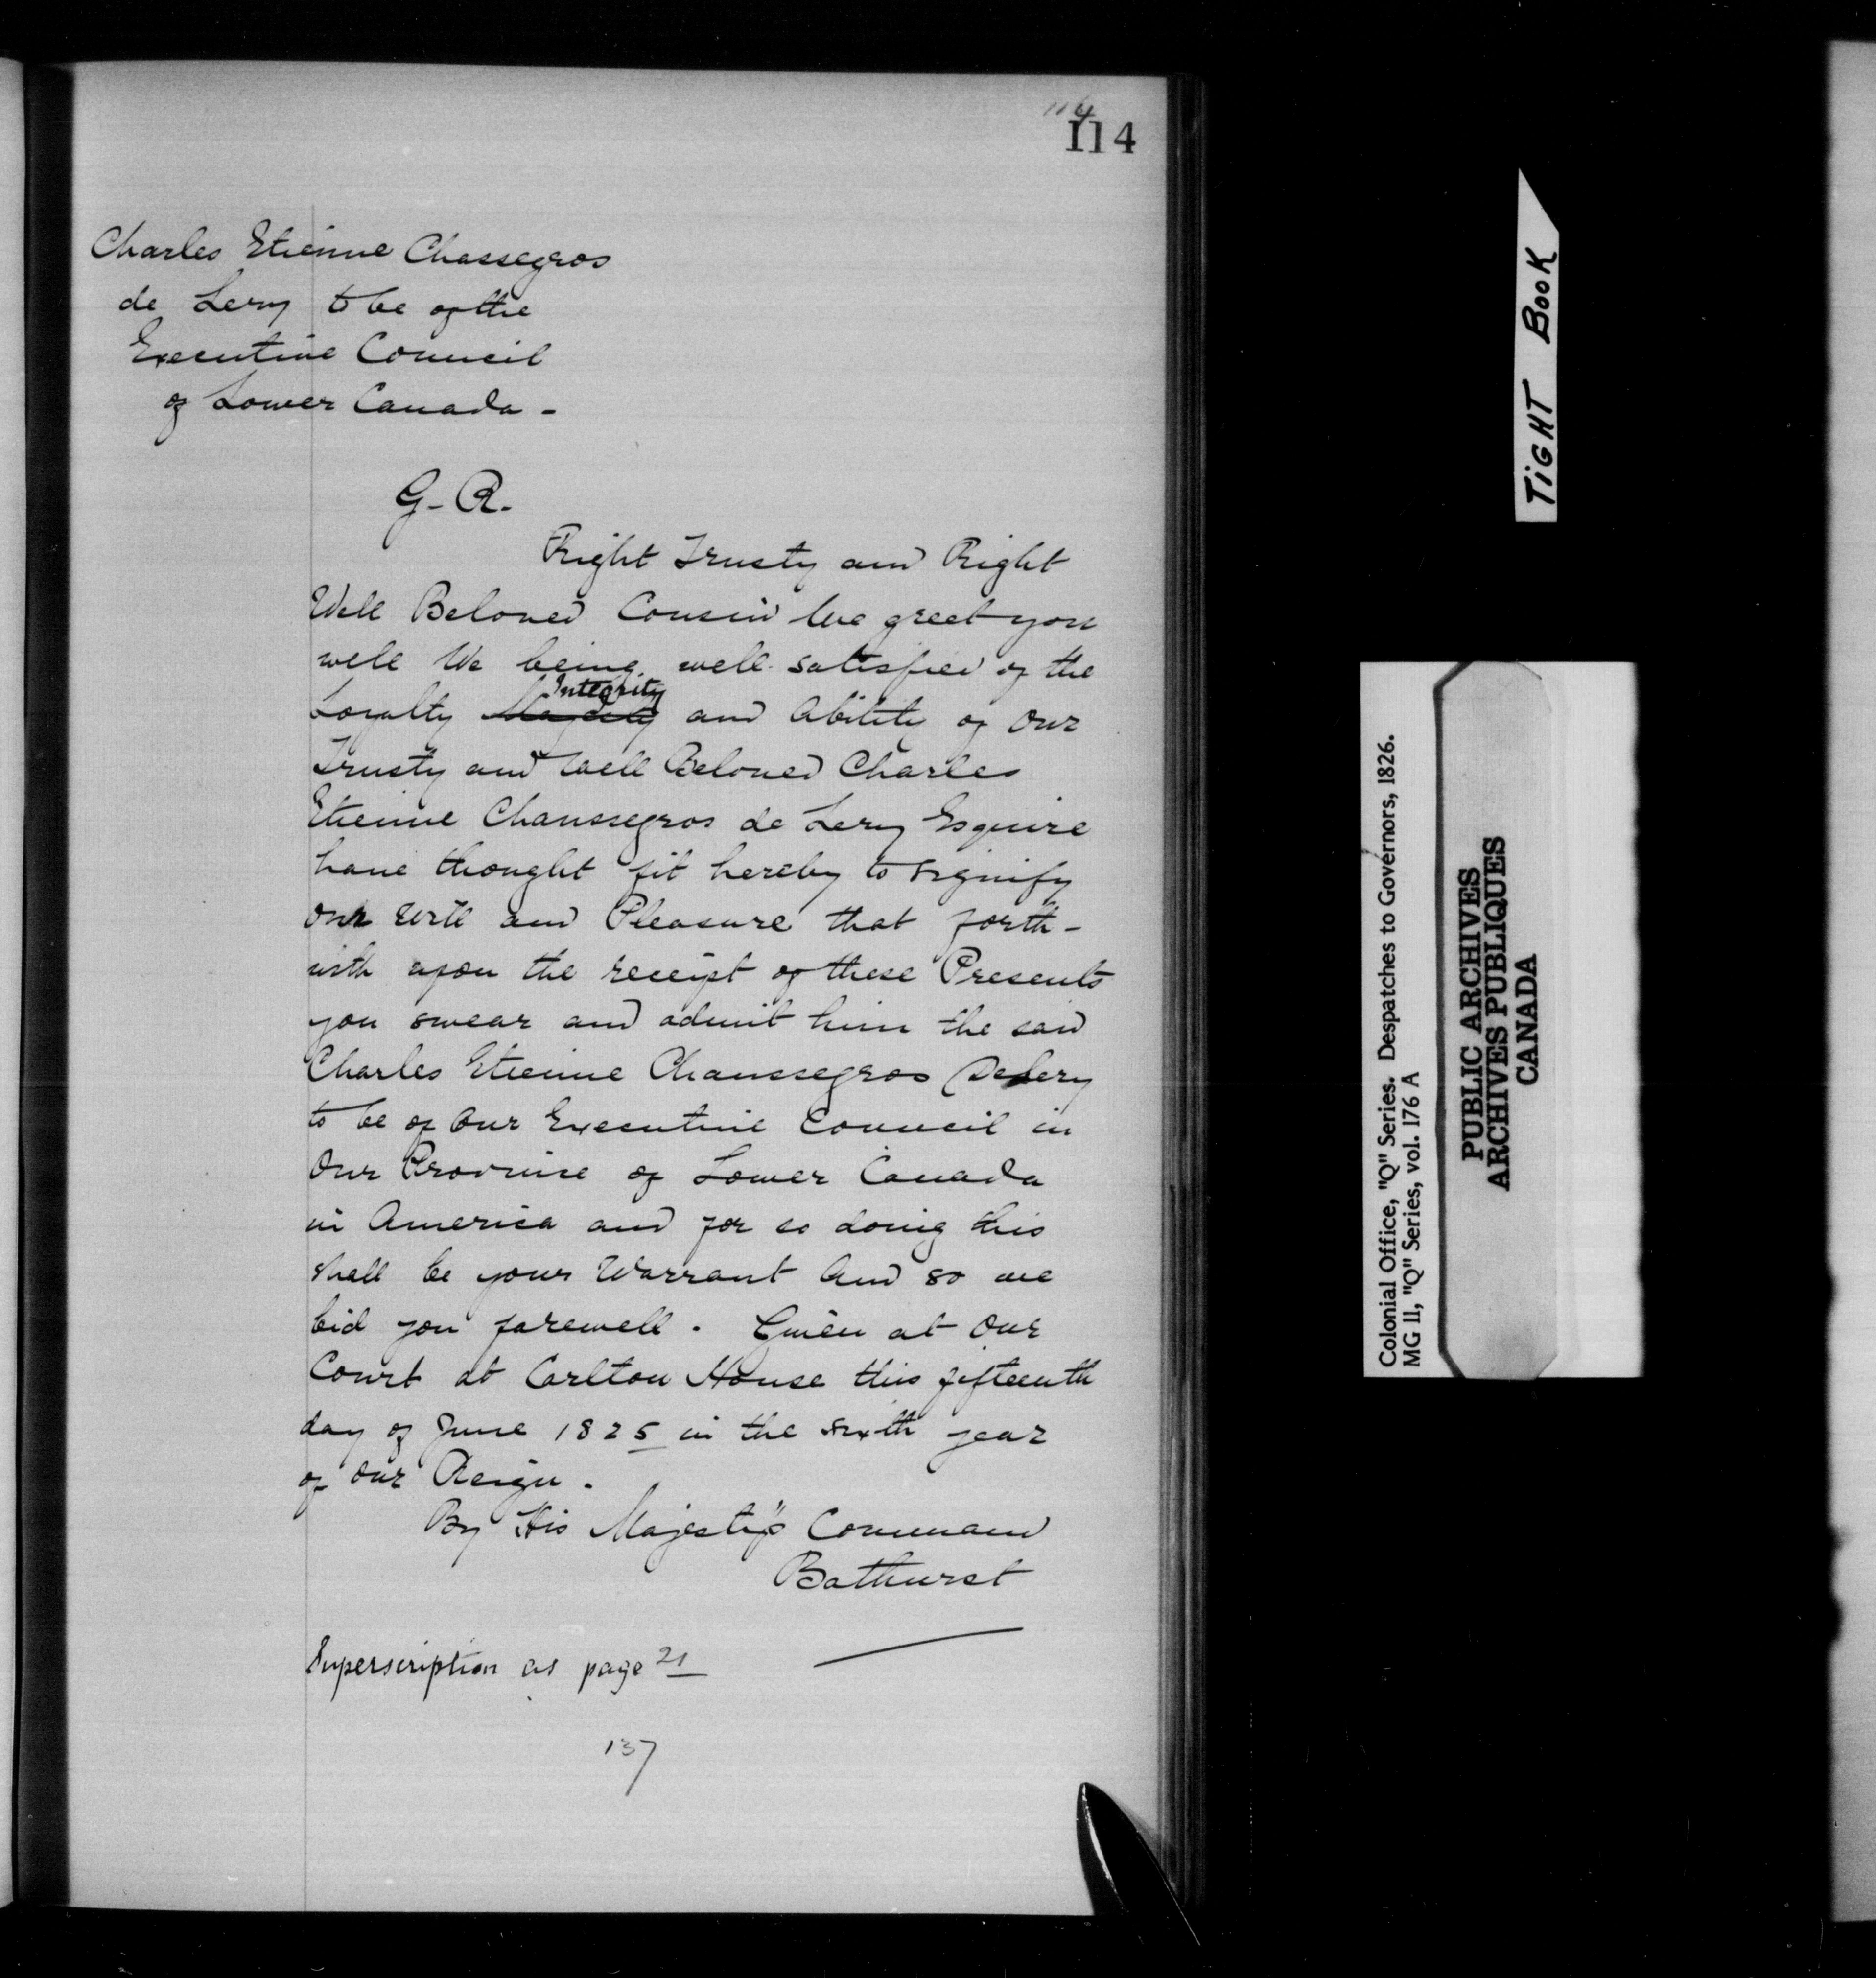 114
114
Charles Etienne Chassegros
de Lery to be of the
Executive Council
of Lower Canada -
G. R.
Right Trusty and Right
Well Beloved Cousin We greet you
well We being well satisfied of the
Integrity
Loyalty and Ability of Our
Trusty and Well Beloved Charles
Etienne Chaussegros de Lery Esquire
have thought fit hereby to signify
Our Will and Pleasure that forth-
with upon the receipt of these Presents
you swear and admit him the said
Charles Etienne Chaussegros DeLery
to be of Our Executive Council in
Our Province of Lower Canada
in America and for so doing this
shall be your Warrant And so we
bid you farewell. Given at Our
Court at Carlton House this fifteenth
day of June 1825 in the sixth year
of Our Reign.
By His Majesty's Command
Bathurst
Superscription as page 21
137
TIGHT BOOK
Colonial Office, "Q" Series. Despatches to Governors, 1826.
MG 11, "Q" Series, vol. 176 A
PUBLIC ARCHIVES
ARCHIVES PUBLIQUES
CANADA